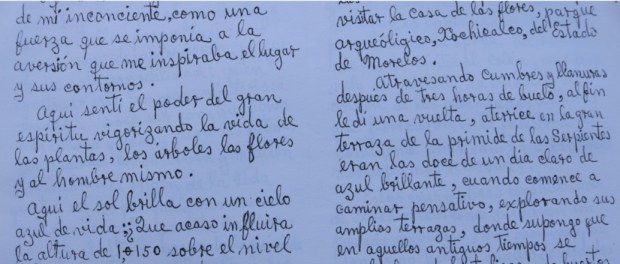 de mi inconciente, como una
fuerza que se imponía a la
aversión que me inspiraba el lugar
y sus contornos.
Aqui sentí el poder del gran
espiritu vigorizando la vida de
las plantas, los árboles las flores
y al hombre mismo.
Aqui el sol brilla con un cielo
azul de vida ¿¿Que acaso influira
la altura de 1,150 sobre el nivel
visitar la Casa de las flores, parque
arqueóligico, Xochicalco, del Estado
de Morelos.
Atravesando Cumbres y llanuras
después de tres horas de buelo, al fin
le di una vuelta, aterrice en la gran
terraza de la primide de las Serpientes
eran las doce de un dia claro de
azul brillante, cuando comence a
caminar pensativo, explorando sus
amplios terrazas, donde supongo que
en aquellos antiguos tiempos se